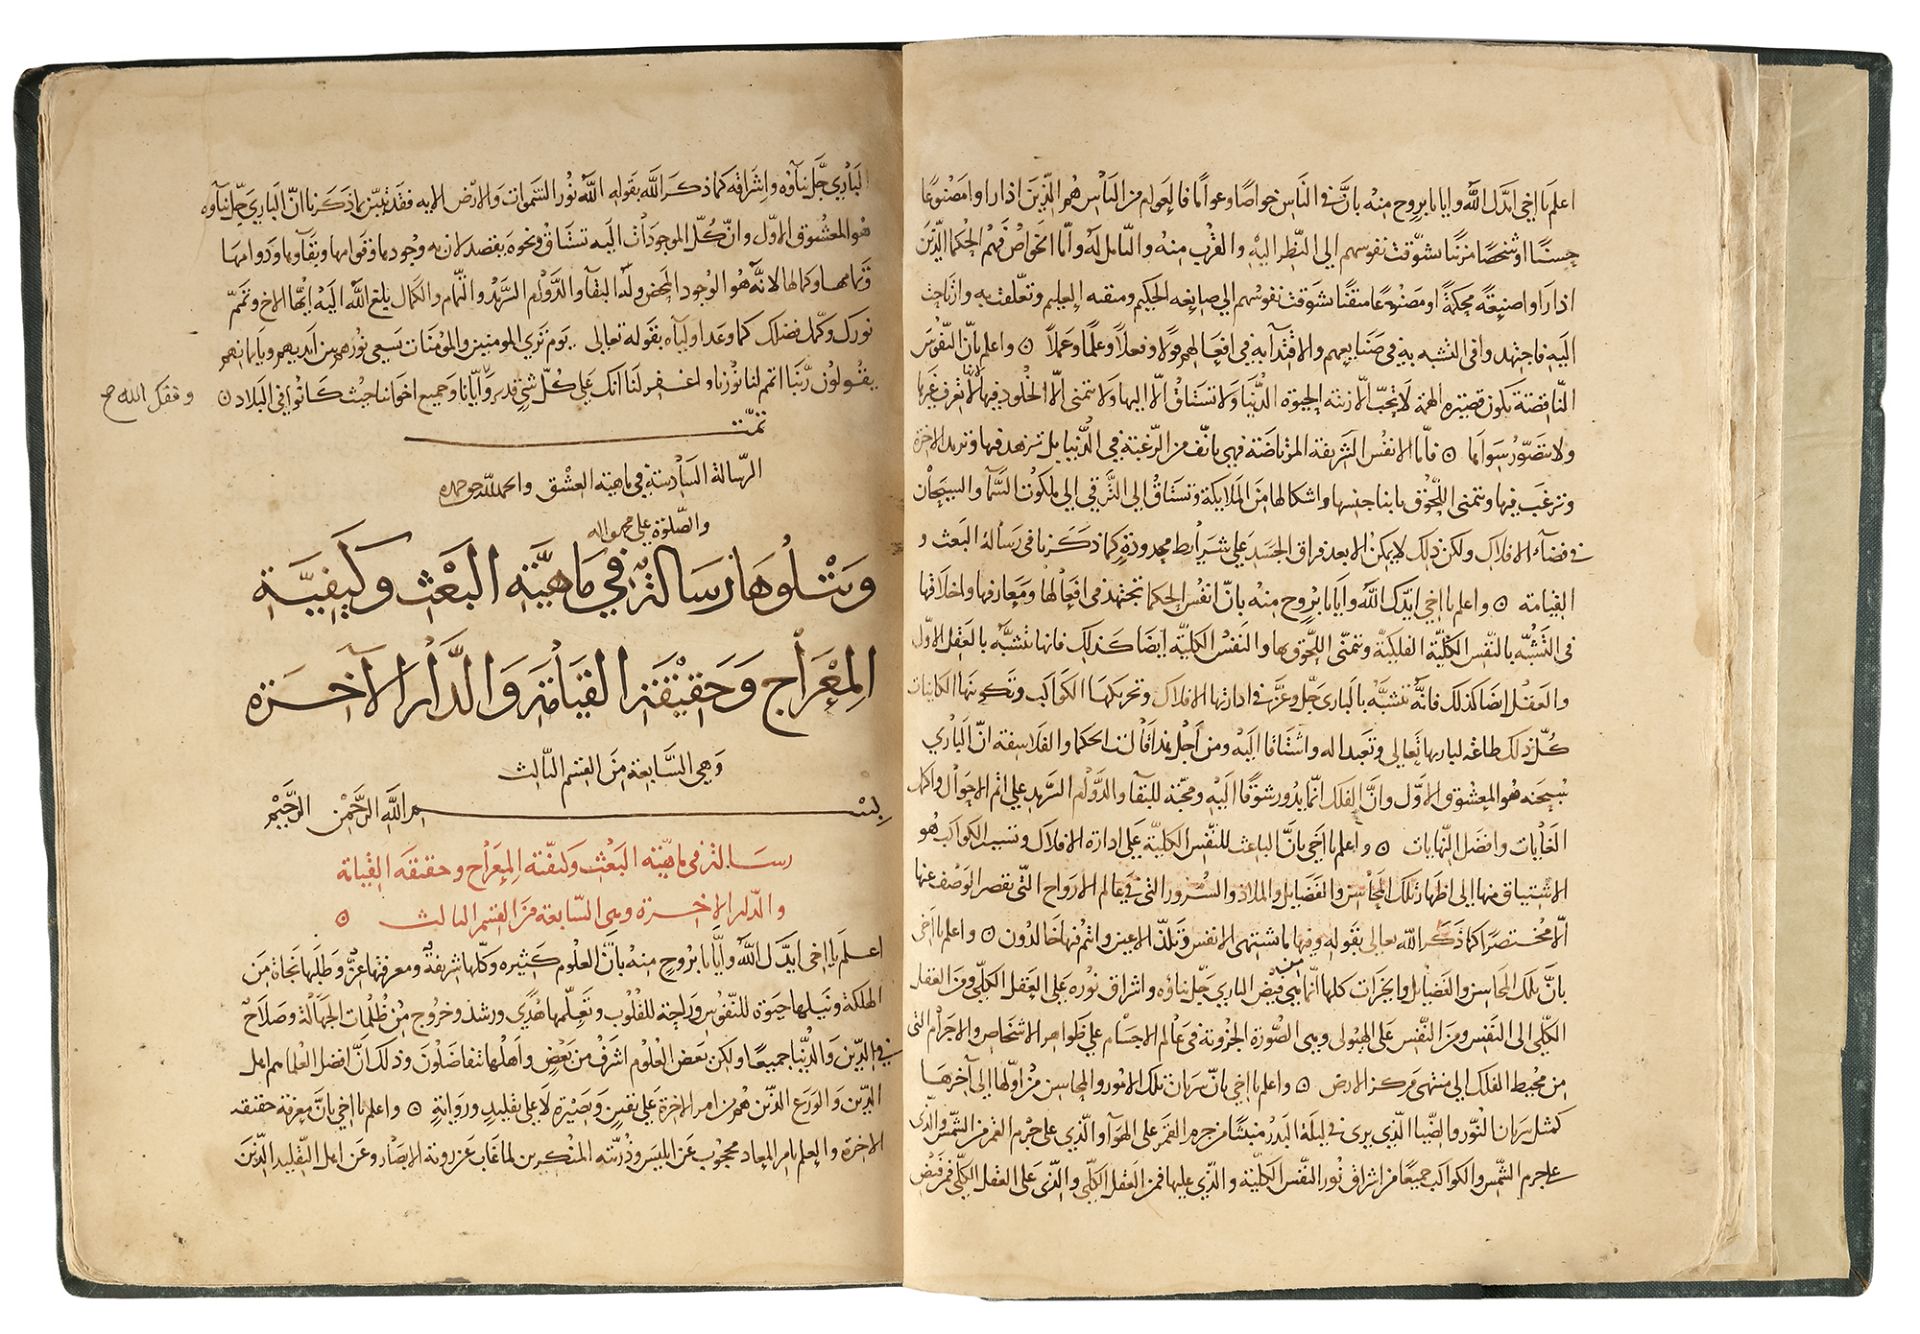 اعلم يا اخي ايدك الله وايانا بروح منه بان في الناس خواصا وعواما فالعوام من الناس هم الذين اذا راوا مصنوعا
حسنا او شخصا مزينا تشوقت نفوسهم الي النظر اليه والقرب منه والتامل له واما الخواص فهم الحكما الذين
اذا راوا صنيعة محكمة او مصنوعا متقنا تشوقت نفوسهم الي صانعه الحكيم ومتقنه العليم وتعلقت به وارتاحت
اليه فاجتهدوا في التشبه به في صنايعهم والاقتدآ به في افعالهم قولا وفعلا وعلما وعملا ۞ واعلم بان النفوس
الناقصة تكون قصيرة الهمة لا تحب الا زينة الحيوة الدنيا ولا تشتاق الا اليها ولا تتمنى الا الخلود فيها لانها لا تعرف غيرها
ولا تتصور سواها ۞ فاما الانفس الشريفة المرتاضة فهي تانف من الرغبة في الدنيا بل تزهد فيها وتريد الاخرة
وترغب فيها وتتمنى اللحوق بابنا جنسها واشكالها من الملايكة وتشتاق الي الترقي الي ملكوت السمآ والسيحان
في فضآء الافلاك ولكن ذلك لا يمكن الا بعد فراق الجسد علي شرايط محدودة كما ذكرنا في رسالة البعث و
القيامة ۞ واعلم يا اخي ايدك الله وايانا بروح منه بان انفس الحكما تجتهد في افعالها ومعارفها واخلاقها
في التشبه بالنفس الكلية الفلكية وتتمنى اللحوق بها والنفس الكلية ايضا كذلك فانها تتشبه بالعقل الاول
والعقل ايضا كذلك فانه تتشبه بالباري جل وعز في ادارتها الافلاك وتحريكها الكواكب وتكوينها الكاينات
كل ذلك طاعة لباريها تعالي وتعبدا له واشتاقا اليه ومن اجل هذا قالت الحكما والفلاسفة ان الباري
سبحنه هو المعشوق الاول وان الفلك انما يدور شوقا اليه ومحبة للبقآ والدوام السرمد علي اتم الاحوال واكمل
الغايات وافضل النهايات ۞ واعلم يا اخي بان الباعث للنفس الكلية علي ادارة الافلاك وتسيير الكواكب هو
الاشتياق منها الي اظهار تلك المحاسن والفضايل والملاذ والسرور التي في عالم الارواح التي تقصر الوصف عنها
الا مختصرا كما ذكر الله تعالي بقوله وفيها ما تشتهي الانفس وتلذ الاعين وانتم فيها خالدون ۞ واعلم يا اخي
بان تلك المحاسن والفضايل والخيرات كلها انما هي من فيض الباري جل ثناؤه واشراق نوره علي العقل الكلي ومن العقل
الكلي الي النفس ومن النفس علي الهيولي وهي الصورة الجزوية في عالم الاجسام علي ظواهر الاشخاص والاجرام التي
من محيط الفلك الي منتهى مركز الارض ۞ واعلم يا اخي بان سريان تلك الانوار والمحاسن من اولها الي آخرها
كمثل سريان النور والضيا الذي يري في ليلة البدر منبثا من جرم القمر علي الهوآ والذي علي جرم القمر من الشمس والذي
علي جرم الشمس والكواكب جميعا من اشراق نور النفس الكلية والذي عليها فمن العقل الكلي والذي علي العقل الكلي فمن فيض
الباري جل ثناؤه واشراقه كما ذكر الله بقوله الله نور السموات والارض الايه فقد تبين بما ذكرنا ان الباري جل ثناؤه
هو المعشوق الاول وان كل الموجودات اليه تشتاق ونحوه يقصد لان به وجودها وقوامها وبقاؤها ودوامها
وتمامها وكمالها لانه هو الوجود المحض وله البقآ والدوام السرمد والتمام والكمال بلغ الله اليه ايها الاخ وتمم
نورك وكمل فضلك كما وعد اوليآه بقوله تعالي يوم تري المومنين والمؤمنات يسعى نورهم بين ايديهم وبايمانهم
يقولون ربنا اتمم لنا نورنا واغفر لنا انك علي كل شي قدير وايانا وجميع اخواننا حيث كانوا في البلاد ۞
تمت
الرسالة السادسة في ماهية العشق والحمد لله حق حمده
والصلوة علي محمد واله
ويتلوها رسالة في ماهية البعث وكيفية
المعراج وحقيقة القيامة والدار الآخرة
وهي السابعة من القسم الثالث
بسم الله الرحمن الرحيم
رسالة في ماهية البعث وكيفية المعراج وحقيقة القيامة
والدار الاخرة وهي السابعة من القسم الثالث ۞
اعلم يا اخي ايدك الله وايانا بروح منه بان العلوم كثيره وكلها شريفة ومعرفتها عز وطلبها نجاة من
الهلكة ونيلها حيوة للنفوس وراحة للقلوب وتعلمها هدي ورشد وخروج من ظلمات الجهالة وصلاح
في الدين والدنيا جميعا ولكن بعض العلوم اشرف من بعض واهلها متفاضلون وذلك ان افضل العلما هم اهل
الدين والورع الذين هم من امر الاخرة علي يقين وبصيرة لا علي تقليد ورواية ۞ واعلم يا اخي بان معرفة حقيقة
الاخرة والعلم بامر المعاد محجوب عن ابليس وذريته المنكرين لما غاب عن روية الابصار وعن اهل التقليد الذين